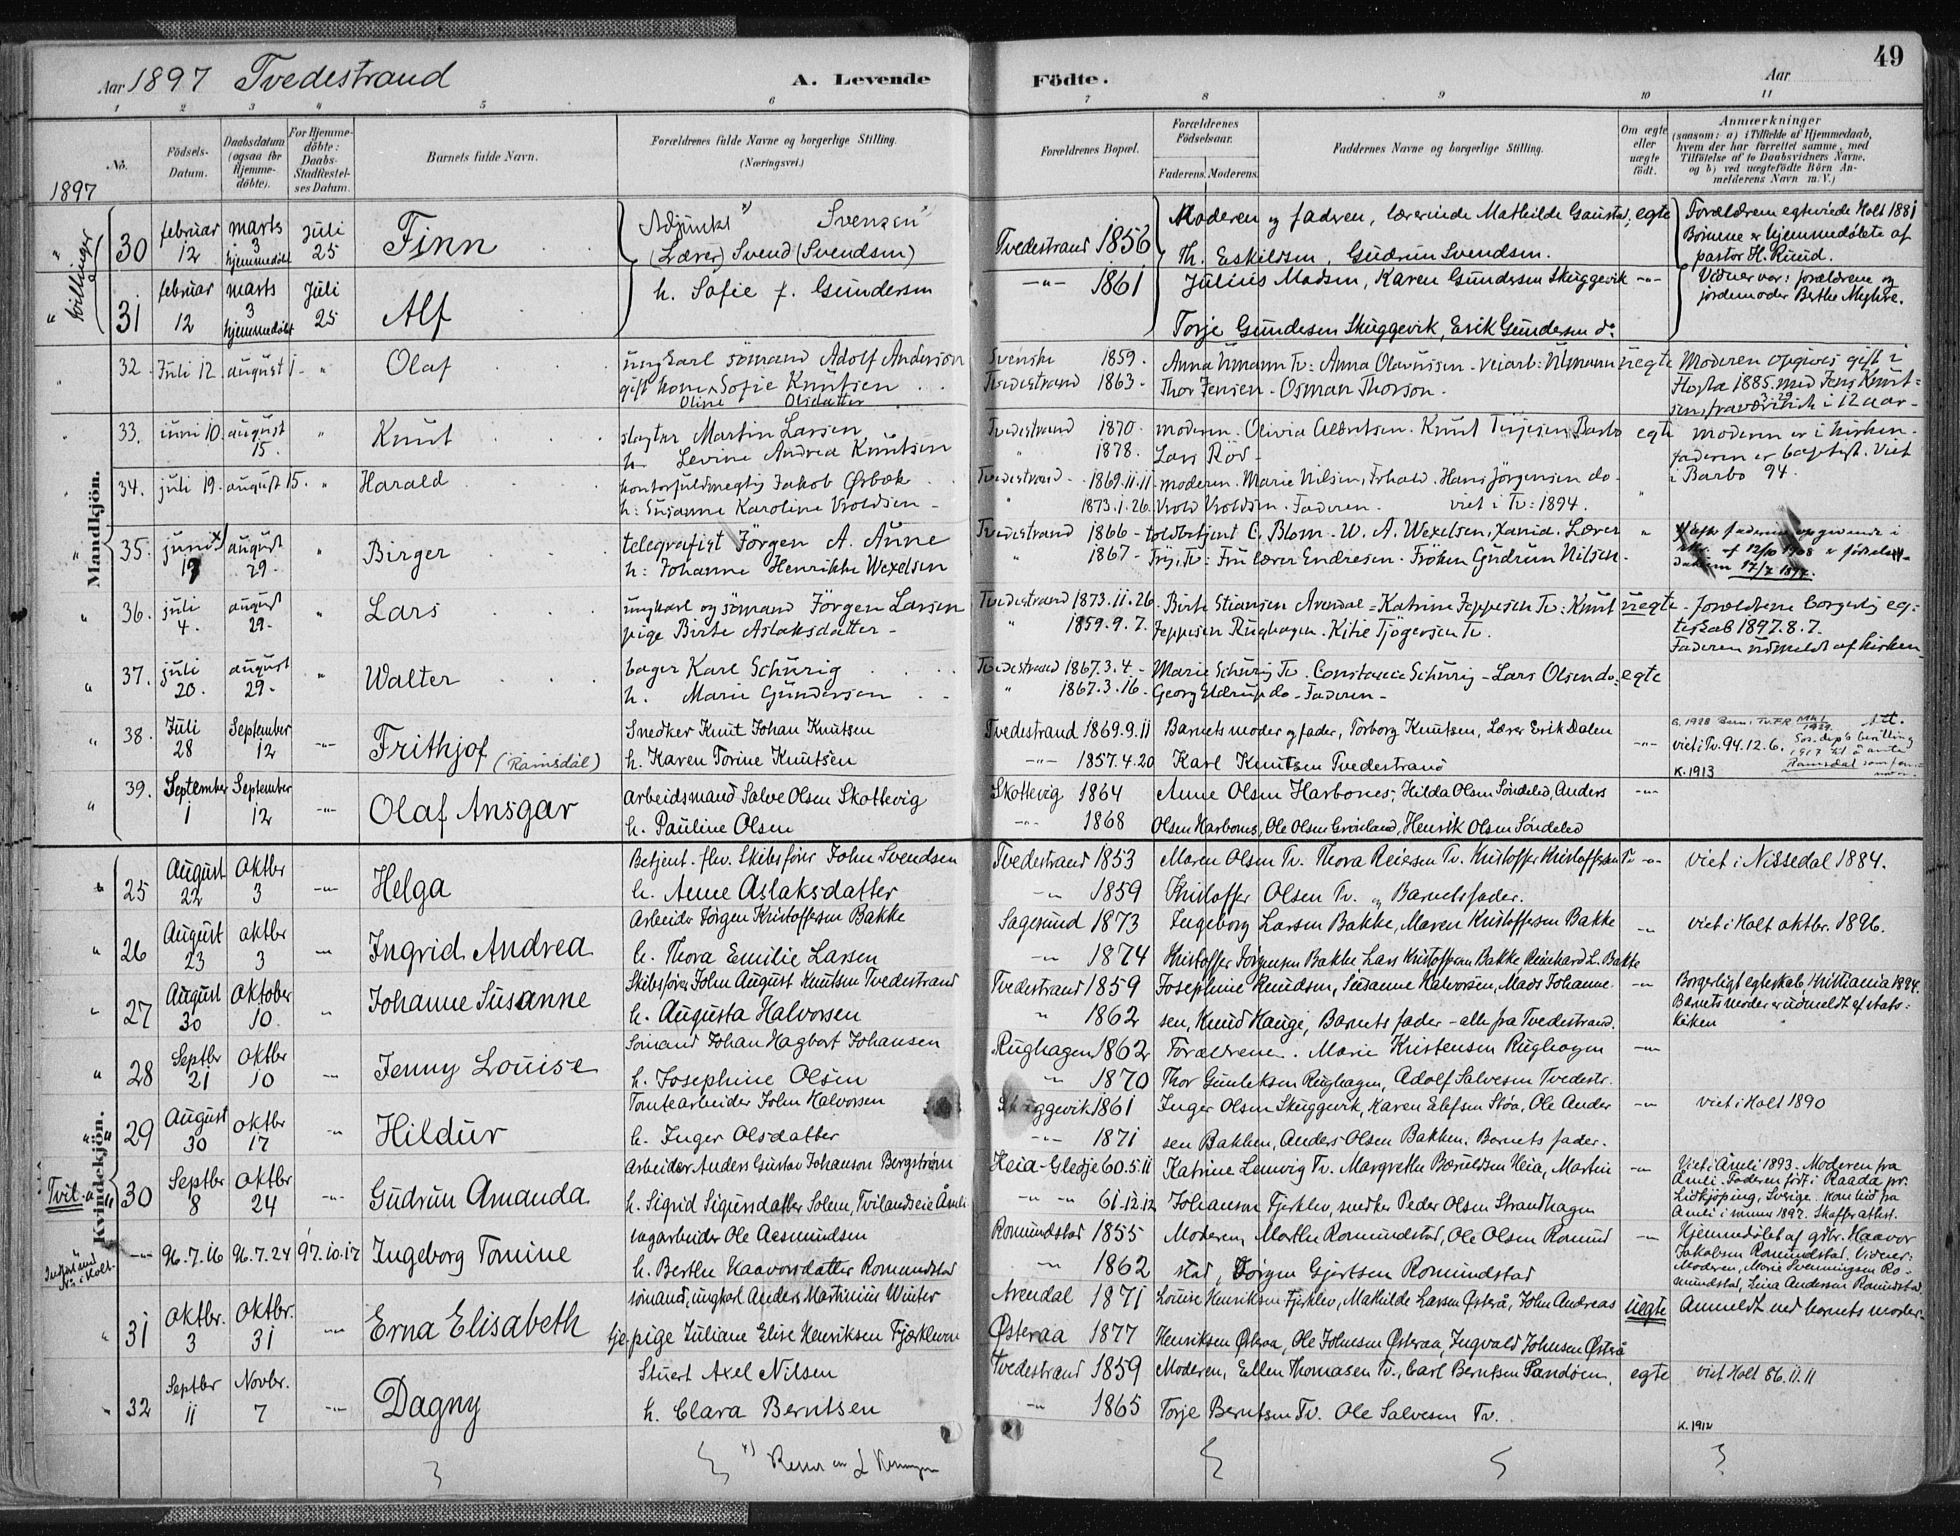 49
Aar 1897 Tvedestrand A. Levende Födte. Aar
1 2 3 4 5 6 7 8 9 10 11
No.
Födsels-Datum.
Daabsdatum (ogsaa for Hjemmedöbte).
For Hjemmedöbte: Daabs-Stadfæstelses Datum.
Barnets fulde Navn.
Forældrenes fulde Navne og borgerlige Stilling.
(Næringsvei.)
Forældrenes Bopæl.
Forældrenes Födselsaar.
Faderens. Moderens.
Faddernes Navne og borgerlige Stilling.
Om ægte eller uægte födt.
Anmærkninger
(saasom: a) i Tilfælde af Hjemmedaab, hvem der har forrettet samme, med Tilföielse af to Daabsvidners Navne, og b) ved uægtefödte Börn Anmelderens Navn m. V.)
1897
Mandkjön.
tvillinger
30 februar 12 marts 3 hjemmedöbt Juli 25 Finn
Adjunkt Svensen
(Lærer) Svend (Svendsen)
Tvedestrand 1856
Moderen og faderen, lærerinde Mathilde Gaustad, egte
Th. Eskildsen, Gudrun Svendsen.
Forældrene egteviede Holt 1881
Börnene er hjemmedöbte af
pastor H. Riind.
31 februar 12 marts 3 hjemmedöbt Juli 25 Alf
h. Sofie f. Gundersen
-"- 1861
Julius Madsen, Karen Gundersen Skuggevik -"-
Torje Gundersen Skuggevik, Erik Gundersen do
Vidner var: forældrene og
jordemoder Berthe
32. Juli 12. august 1. " Olaf
ungkarl sömand Adolf Anderson
gift kone Sofie Knutsen
Oline Olsdatter
Svenske 1859.
Tvedestrand 1863.
Anna Ulmann Tv: Anna Olavussen veiarb: Ulmann uegte
Thor Jensen - Osman Thorson.
Moderen opgives gift i
1885 med Jens Knut-
sen, fraværende i 12 aar.
33. juni 10. august 15. " Knut
slagter Martin Larsen
h. Levine Andrea Knutsen
Tvedestrand 1870.
" 1878.
moderen. Olivia Albretsen. Knut Terjesen Barbo egte
Lars Röd
moderen er i kirken.
faderen er baptist. Viet
i Barbo 94.
34. juli 19. august 15. " Harald
kontorfuldmegtig Jakob Örbæk
h: Susanne Karoline Vroldsen
Tvedestrand 1869.11.11.
" 1873.1.26.
moderen. Marie Nilsen, Hans Jörgensen do
Vrold Vroldsen. Faderen. viet i Tv: 1894.
35. juni 17 august 29. " Birger
telegrafist Jörgen A. Aune
h: Johanne Henrikke Wexelsen
Tvedestrand 1866
" 1867
toldbetjent C. Blom. W. A. Wexelsen, kand. Lærer "
Tv: Fru lærer Endresen. Fröken Gudrun Nilsen
x) efter faderens opgivende i
af 12/10 1908 er födsels-
datum 17/7 1897.
36. juli 4. august 29. " Lars
ungkarl og sömand Jörgen Larsen
pige Birte Aslaksdatter
Tvedestrand 1873.11.26
" 1859.9.7.
Birte Stiansen Arendal - Katrine Jeppesen Tv: Knut uegte
Jeppesen Rughagen. Kitie Tjögersen Tv.
Forældrene borgerlig eg-
teskab 1897.8.7.
Faderen udmeldt af kirken
37. juli 20. august 29. " Walter
bager Karl Schurig
h. Marie Gundersen
Tvedestrand 1867.3.4
" 1867.3.16.
Marie Schurig Tv. Constance Schurig - Lars Olsen do: egte
Georg Eldrup do - Faderen
38. Juli 28 September 12 -"- Frithjof (Ramsdal)
Snedker Knut Johan Knutsen
h. Karen Torine Knutsen
Tvedestrand 1869.9.11
-"- 1857.4.20
Barnets moder og fader, Torborg Knutsen, Lærer Erik Dalen
Karl Knutsen Tvedestrand
-"-
viet i Tv. 94.12.6.
K. 1913
39. September 1 September 12 -"- Olaf Ansgar
Arbeidsmand Salve Olsen Skottevig
h. Pauline Olsen
Skottevig 1864
-"- 1868
Anne Olsen Harbones; Hilda Olsen Söndeled, Anders
Olsen Harbones, Ole Olsen Grönland, Henrik Olsen Söndeled
-"-
Kvindekjön.
25 August 22 Oktbr 3 -"- Helga
Betjent. fhv. Skibsfører John Svendsen
h. Anne Aslaksdatter
Tvedestrand 1853
-"- 1859
Maren Olsen Tv. Thora Reiersen Tv. Kristoffer Kristoffersen Tv -"-
Kristoffer Olsen Tv. og Barnets fader.
viet i Nissedal 1884.
26 August 23 oktbr 3 -"- Ingrid Andrea
Arbeider Jørgen Kristoffersen Bakke
h. Thora Emilie Larsen
Sagesund 1873
-"- 1874
Ingeborg Larsen Bakke, Maren Kristoffersen Bakke -"-
Kristoffer Jørgensen Bakke Lars Kristoffersen Bakke Reinhard L. Bakke
viet i Holt oktbr. 1896.
27 August 30 Oktober 10. " Johanne Susanne
Skibsfører John August Knutsen Tvedestrand
h. Augusta Halvorsen
Tvedestrand 1859
" 1862
Josephine Knudsen, Susanne Halvorsen, Mads Johanne- -"-
sen, Knud Hauge, Barnets fader - alle fra Tvedestrand.
Borgerligt egteskab, Kristiania 1894.
Barnets moder er udmeldt af stats-
kirken
28 Septbr 21 Oktbr 10 -"- Jenny Louise
Sömand Johan Hagbart Johansen
h. Josephine Olsen
Rughagen 1862
" 1870
Forældrene. Marie Kristensen Rughagen -"-
Thor Gunleksen Rughagen, Adolf Salvesen Tvedestr.
29 August 30 oktbr 17 -"- Hildur
Tomtearbeider John Halvorsen
h. Inger Olsdatter
Skuggevik 1861
-"- 1871
Inger Olsen Skuggevik, Karen Elefsen Støa, Ole Ander -"-
sen Bakken, Anders Olsen Bakken. Barnets fader.
viet i Holt 1890
Tvil.
30 Septbr 8 Oktbr 24 -"- Gudrun Amanda
Arbeider Anders Gustav Johanson Bergström
h. Sigrid Sigursdatter Solem, Tvilandseie Åmli
Heia-Gledje 60.5.11
-"- -"- 61.12.12
Katrine Lemvig Tv. Margrethe Bæruldsen Heia, Martin -"-
Johanson Fjerklev, snedker Peder Olsen Strandhagen
Viet i Åmli 1893. Moderen fra
Åmli. Faderen født i Raada pr.
Lidkjöping, Sverige. Kom hid fra
Åmli i sommer 1897. Skaffer attest.
-"- 96.7.16 96.7.24 97.10.17 Ingeborg Tomine
sagarbeider Ole Aasmundsen
h. Berthe Haavorsdatter Romundstad
Romundstad 1855
-"- 1862
Moderen, Marthe Romundstad, Ole Olsen Romund -"-
stad, Jörgen Gjertsen Romundstad
Hjemmedöbt af gdbr. Haavor
Jakobsen Romundstad. Vidner:
Moderen, Marie Svenningsen Ro-
mundstad, Lina Andersen Romundstad.
31 Oktbr. 3 Oktbr. 31 -"- Erna Elisabeth
sömand, ungkarl Anders Martinius Winter
tjepige Juliane Elise Henriksen Fjærkleven
Arendal 1871
Østeraa 1877
Louise Henriksen Fjerklev, Mathilde Larsen Østerå, John Andreas uegte
Henriksen Østeraa, Ole Johnsen Østeraa, Ingvald Johnsen Østerå
Anmeldt ved barnets moder
32 Septbr 11 Novbr. 7 -"- Dagny
Stuert Axel Nilsen
h. Clara Berntsen
Tvedestrand 1859
-"- 1865
Moderen, Ellen Thomasen Tv., Carl Berntsen Sandöen, egte
Torje Berntsen Tv. Ole Salvesen Tv.
viet Holt 86.11.11
K. 1912